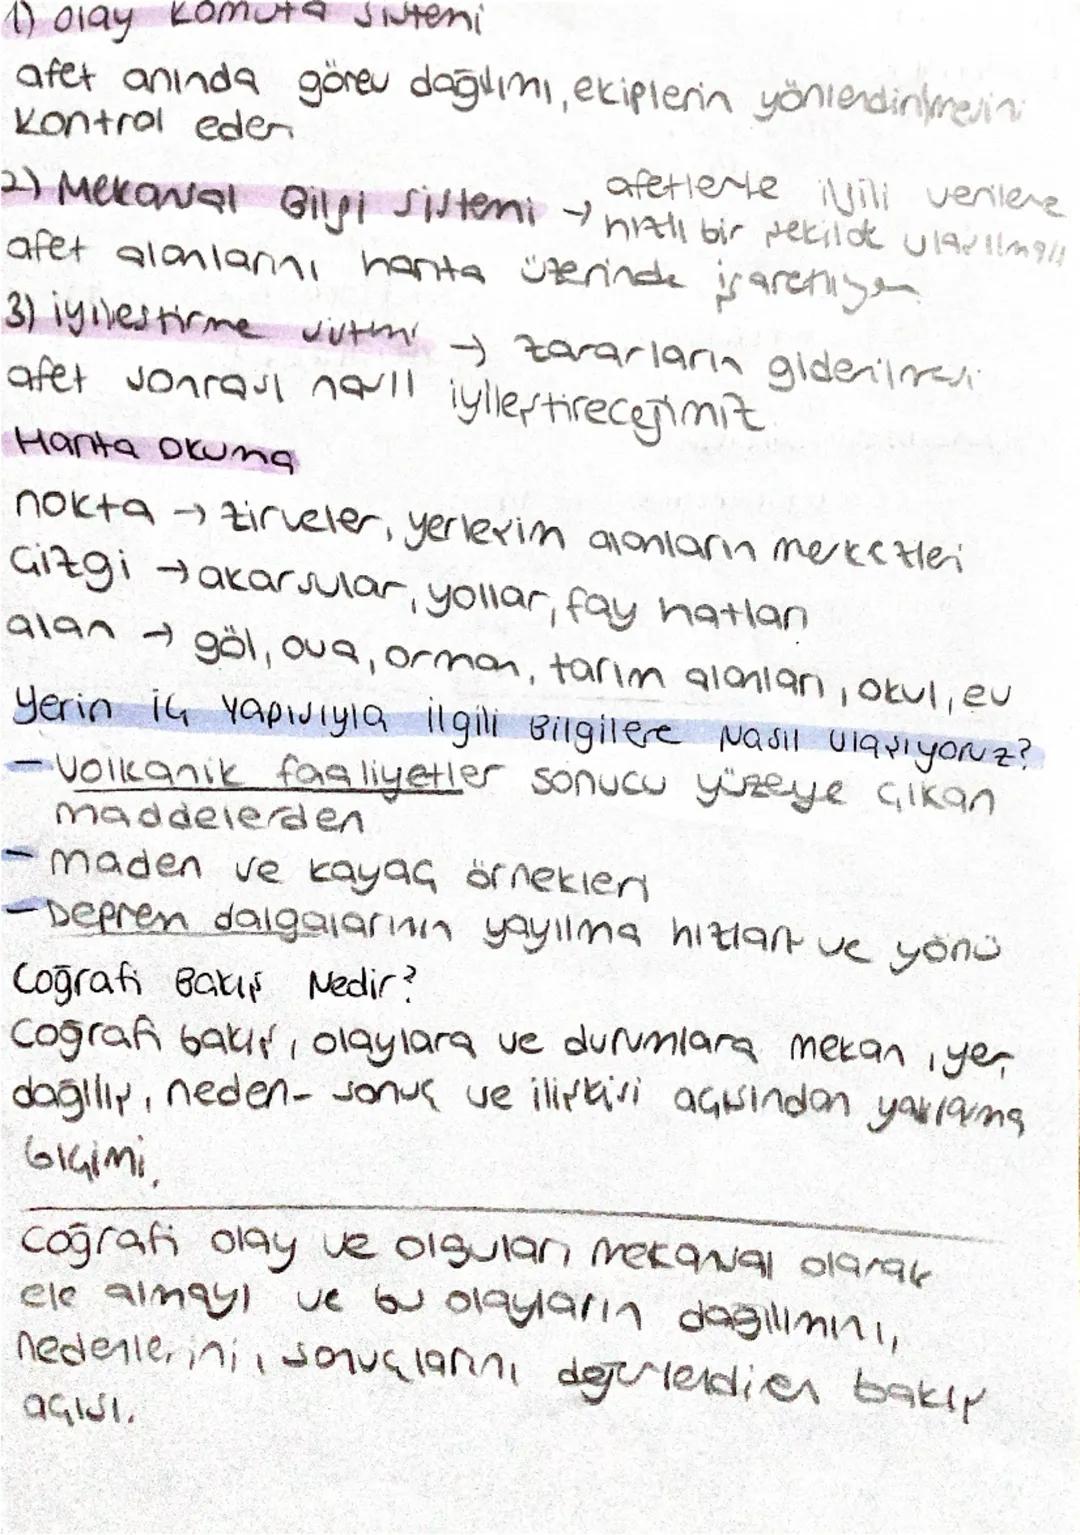 1) Olay Komuta Sistemi
afet anında görev dağılımı, ekiplerin yönlendirilmesini
kontrol eder.
2) Mekansal Bilgi Sistemi → afetlerle ilgili verilere
hızlı bir şekilde ulaşılması
afet alanlarını harita üzerinde işaretliyor
3) iyileştirme sistemi → zararların giderilmesi
afet sonrası nasıl iyileştireceğimiz
Harita Okuma
nokta → zirveler, yerleşim alanların merkezleri
Çizgi → akarsular, yollar, fay hatları
alan → göl, ova, orman, tarım alanları, okul, ev
Yerin iç Yapısıyla ilgili Bilgilere Nasıl Ulaşıyoruz?
- Volkanik faaliyetler sonucu yüzeye çıkan
maddelerden
- maden ve kayaç örnekleri
- Deprem dalgalarının yayılma hızları ve yönü
Coğrafi Bakış Nedir?
Coğrafi bakış, olaylara ve durumlara mekan, yer,
dağılış, neden-sonuç ve ilişkisi açısından yaklaşma
biçimi.
Coğrafi olay ve olguları mekansal olarak
ele almayı ve bu olayların dağılımını,
nedenlerini, sonuçlarını değerlendiren bakış
açısı.